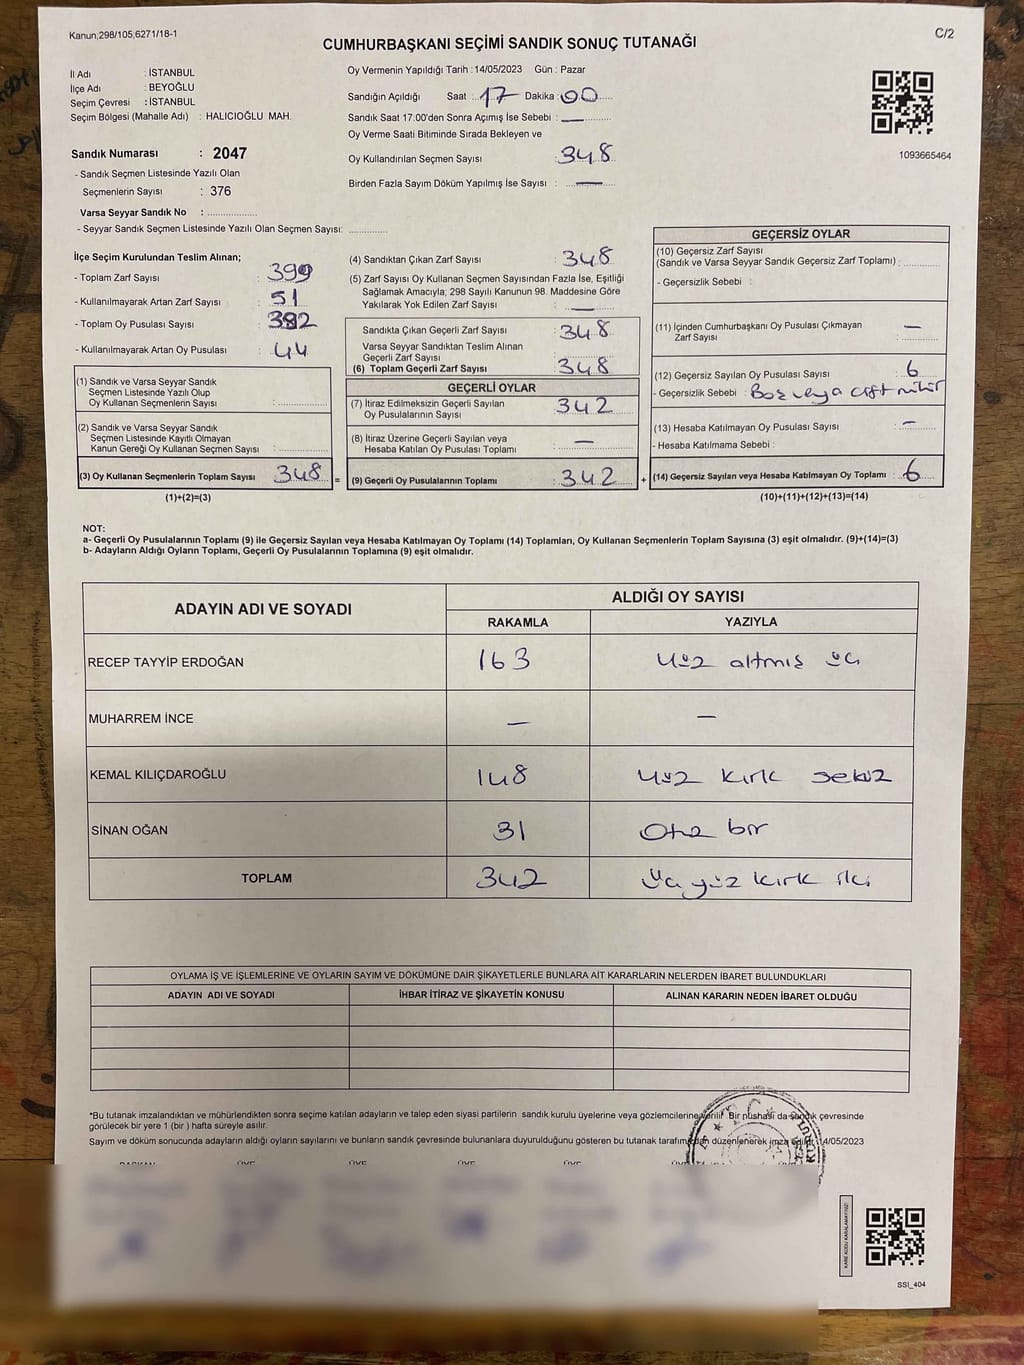 Kanun;298/105,6271/18-1
C/2
CUMHURBAŞKANI SEÇİMİ SANDIK SONUÇ TUTANAĞI
İl Adı : İSTANBUL
İlçe Adı : BEYOĞLU
Seçim Çevresi : İSTANBUL
Seçim Bölgesi (Mahalle Adı) : HALICIOĞLU MAH.
Sandık Numarası : 2047
- Sandık Seçmen Listesinde Yazılı Olan
Seçmenlerin Sayısı : 376
Varsa Seyyar Sandık No : ................
- Seyyar Sandık Seçmen Listesinde Yazılı Olan Seçmen Sayısı: ............
Oy Vermenin Yapıldığı Tarih : 14/05/2023 Gün : Pazar
Sandığın Açıldığı Saat : 17 Dakika : 00
Sandık Saat 17.00'den Sonra Açımış İse Sebebi : —
Oy Verme Saati Bitiminde Sırada Bekleyen ve
Oy Kullandırılan Seçmen Sayısı : 348
Birden Fazla Sayım Döküm Yapılmış İse Sayısı : —
1093665464
İlçe Seçim Kurulundan Teslim Alınan;
- Toplam Zarf Sayısı : 399
- Kullanılmayarak Artan Zarf Sayısı : 51
- Toplam Oy Pusulası Sayısı : 392
- Kullanılmayarak Artan Oy Pusulası : 44
(1) Sandık ve Varsa Seyyar Sandık
Seçmen Listesinde Yazılı Olup
Oy Kullanan Seçmenlerin Sayısı : ............
(2) Sandık ve Varsa Seyyar Sandık
Seçmen Listesinde Kayıtlı Olmayan
Kanun Gereği Oy Kullanan Seçmen Sayısı : ............
(3) Oy Kullanan Seçmenlerin Toplam Sayısı : 348 =
(1)+(2)=(3)
(4) Sandıktan Çıkan Zarf Sayısı : 348
(5) Zarf Sayısı Oy Kullanan Seçmen Sayısından Fazla İse, Eşitliği
Sağlamak Amacıyla; 298 Sayılı Kanunun 98. Maddesine Göre
Yakılarak Yok Edilen Zarf Sayısı : —
Sandıkta Çıkan Geçerli Zarf Sayısı : 348
Varsa Seyyar Sandıktan Teslim Alınan
Geçerli Zarf Sayısı : ............
(6) Toplam Geçerli Zarf Sayısı : 348
GEÇERLİ OYLAR
(7) İtiraz Edilmeksizin Geçerli Sayılan
Oy Pusulalarının Sayısı : 342
(8) İtiraz Üzerine Geçerli Sayılan veya
Hesaba Katılan Oy Pusulası Toplamı : —
(9) Geçerli Oy Pusulalarının Toplamı : 342 +
GEÇERSİZ OYLAR
(10) Geçersiz Zarf Sayısı
(Sandık ve Varsa Seyyar Sandık Geçersiz Zarf Toplamı) : ..........
- Geçersizlik Sebebi :
(11) İçinden Cumhurbaşkanı Oy Pusulası Çıkmayan
Zarf Sayısı : —
(12) Geçersiz Sayılan Oy Pusulası Sayısı : 6
- Geçersizlik Sebebi : Boş veya çift mühür
(13) Hesaba Katılmayan Oy Pusulası Sayısı : —
- Hesaba Katılmama Sebebi :
(14) Geçersiz Sayılan veya Hesaba Katılmayan Oy Toplamı : 6
(10)+(11)+(12)+(13)=(14)
NOT:
a- Geçerli Oy Pusulalarının Toplamı (9) ile Geçersiz Sayılan veya Hesaba Katılmayan Oy Toplamı (14) Toplamları, Oy Kullanan Seçmenlerin Toplam Sayısına (3) eşit olmalıdır. (9)+(14)=(3)
b- Adayların Aldığı Oyların Toplamı, Geçerli Oy Pusulalarının Toplamına (9) eşit olmalıdır.
ADAYIN ADI VE SOYADI ALDIĞI OY SAYISI
RAKAMLA YAZIYLA
RECEP TAYYİP ERDOĞAN 163 yüz altmış üç
MUHARREM İNCE — —
KEMAL KILIÇDAROĞLU 148 yüz kırk sekiz
SİNAN OĞAN 31 Otuz bir
TOPLAM 342 üç yüz kırk iki
OYLAMA İŞ VE İŞLEMLERİNE VE OYLARIN SAYIM VE DÖKÜMÜNE DAİR ŞİKAYETLERLE BUNLARA AİT KARARLARIN NELERDEN İBARET BULUNDUKLARI
ADAYIN ADI VE SOYADI İHBAR İTİRAZ VE ŞİKAYETİN KONUSU ALINAN KARARIN NEDEN İBARET OLDUĞU
*Bu tutanak imzalandıktan ve mühürlendikten sonra seçime katılan adayların ve talep eden siyasi partilerin sandık kurulu üyelerine veya gözlemcilerine verilir. Bir nüshası da sandık çevresinde
görülecek bir yere 1 (bir ) hafta süreyle asılır.
Sayım ve döküm sonucunda adayların aldığı oyların sayılarını ve bunların sandık çevresinde bulunanlara duyurulduğunu gösteren bu tutanak tarafımızdan düzenlenerek imza edildi. 14/05/2023
BAŞKAN ÜYE ÜYE ÜYE ÜYE ÜYE
SSI_404